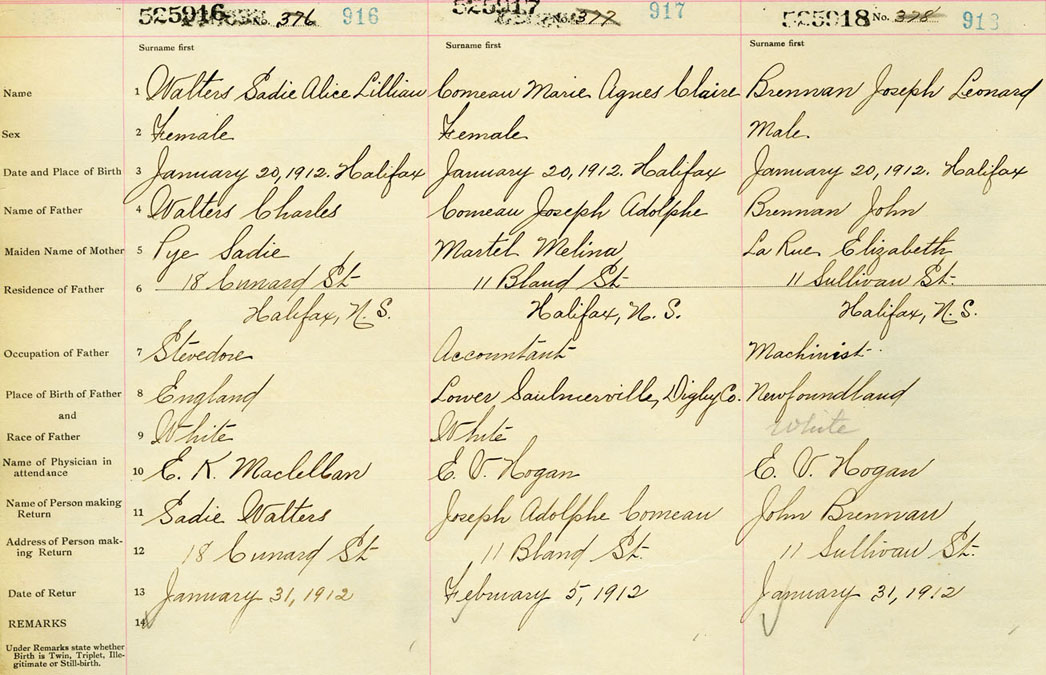 525916 No. 376 916 525917 No. 377 917 525918 No. 378 918
Surname first Surname first Surname first
Name 1 Walters Sadie Alice Lillian Comeau Marie Agnes Claire Brennan Joseph Leonard
Sex 2 Female Female Male.
Date and Place of Birth 3 January 20, 1912. Halifax January 20, 1912. Halifax January 20, 1912. Halifax
Name of Father 4 Walters Charles Comeau Joseph Adolphe Brennan John
Maiden Name of Mother 5 Pye Sadie Martel Melina La Rue Elizabeth
Residence of Father 6 18 Cunard St 11 Bland St 11 Sullivan St.
Halifax, N.S. Halifax, N.S. Halifax, N.S.
Occupation of Father 7 Stevedore Accountant Machinist
Place of Birth of Father 8 England Lower Saulnierville, Digby Co. Newfoundland
and
Race of Father 9 White White White
Name of Physician in
attendance 10 E. K. Maclellan E. V. Hogan E. V. Hogan
Name of Person making
Return 11 Sadie Walters Joseph Adolphe Comeau John Brennan
Address of Person mak-
ing Return 12 18 Cunard St 11 Bland St. 11 Sullivan St.
Date of Retur 13 January 31, 1912 February 5, 1912 January 31, 1912
REMARKS 14
Under Remarks state whether
Birth is Twin, Triplet, Ille-
gitimate or Still-birth.